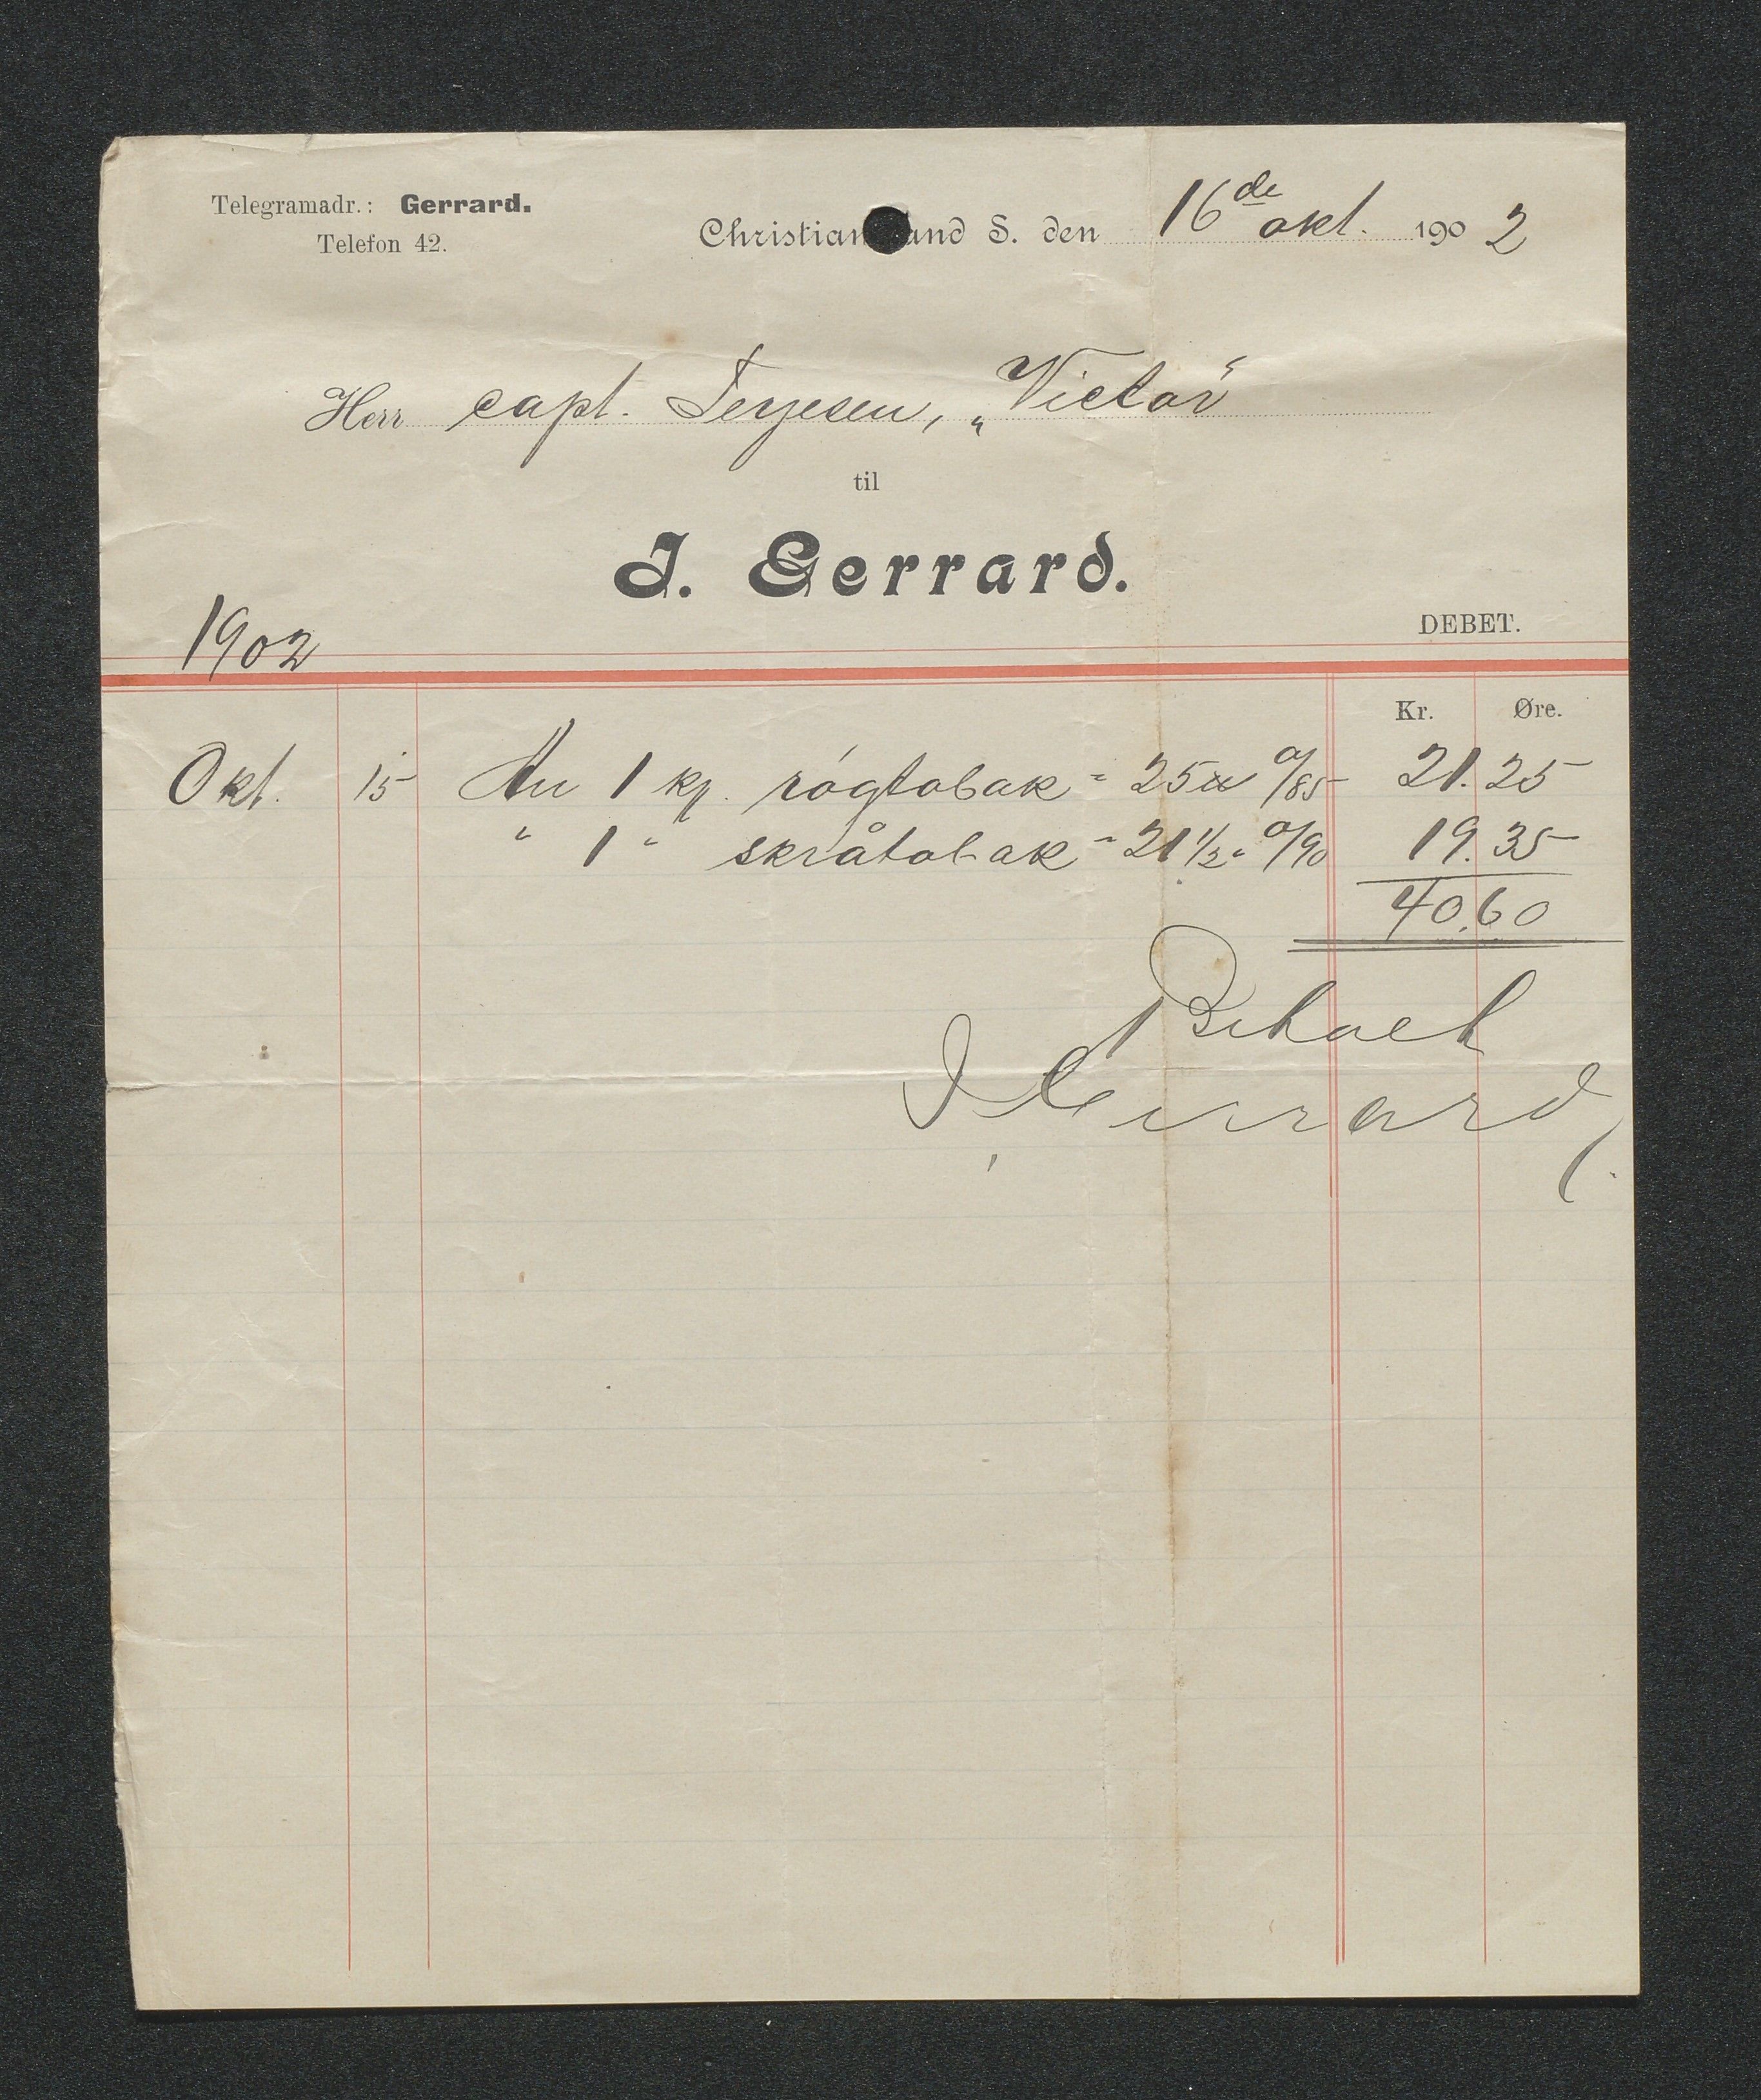 Telegramadr.: Gerrard.
Telefon 42.
Christian and S. den 16de okt. 1902
Herr capt. Terjesen, „Victor"
til
J. Gerrard.
1902
DEBET.
Kr. Øre.
Okt. 15 An 1 kg. røgtobak = 25 ℔ a/85 21.25
" 1 " skråtobak = 21 1/2 " a/90 19.35
40.60
Betalt
J Gerrard